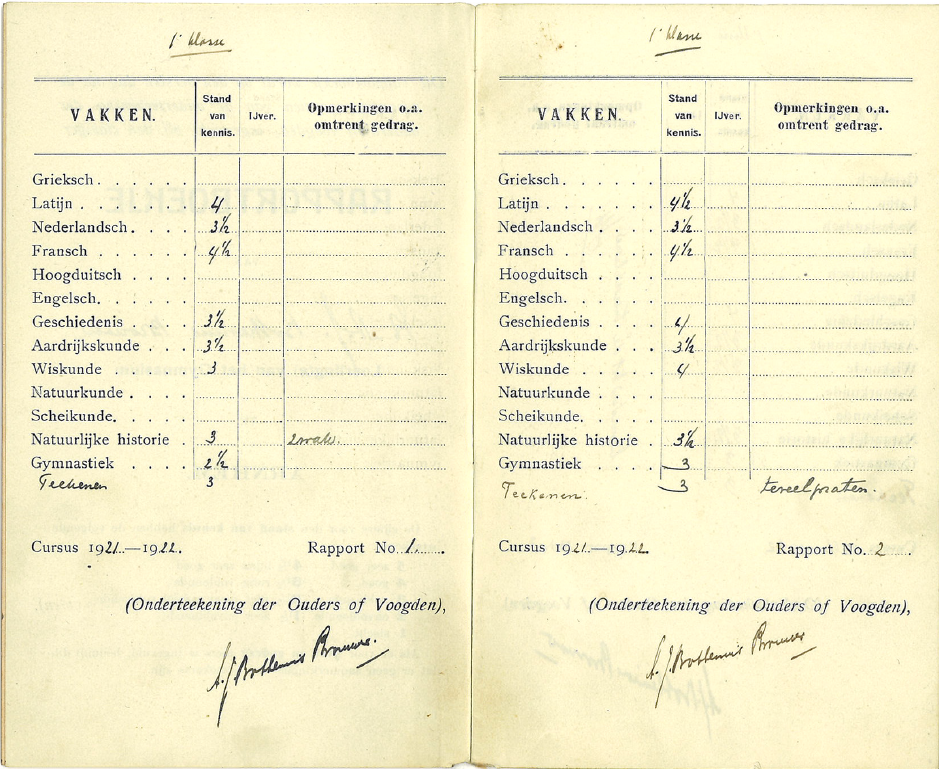 1e klasse
VAKKEN. Stand van kennis. IJver. Opmerkingen o.a. omtrent gedrag.
Grieksch . . . . . .
Latijn . . . . . . 4
Nederlandsch . . . . 3½
Fransch . . . . . 4½
Hoogduitsch . . . .
Engelsch. . . . . .
Geschiedenis . . . . 3½
Aardrijkskunde . . . 3½
Wiskunde . . . . 3
Natuurkunde . . . .
Scheikunde. . . . .
Natuurlijke historie . 3 zwak.
Gymnastiek . . . . 2½
Teekenen 3
Cursus 1921.—1922. Rapport No. 1.
(Onderteekening der Ouders of Voogden),
A. J. Bothenius Brouwer.
1e klasse
VAKKEN. Stand van kennis. IJver. Opmerkingen o.a. omtrent gedrag.
Grieksch . . . . . .
Latijn . . . . . . 4½
Nederlandsch . . . . 3½
Fransch . . . . . 4½
Hoogduitsch . . . .
Engelsch. . . . . .
Geschiedenis . . . . 4
Aardrijkskunde . . . 3½
Wiskunde . . . . 4
Natuurkunde . . . .
Scheikunde. . . . .
Natuurlijke historie . 3½
Gymnastiek . . . . 3
Teekenen. 3 te veel praten.
Cursus 1921.—1922. Rapport No. 2
(Onderteekening der Ouders of Voogden),
A. J. Bothenius Brouwer